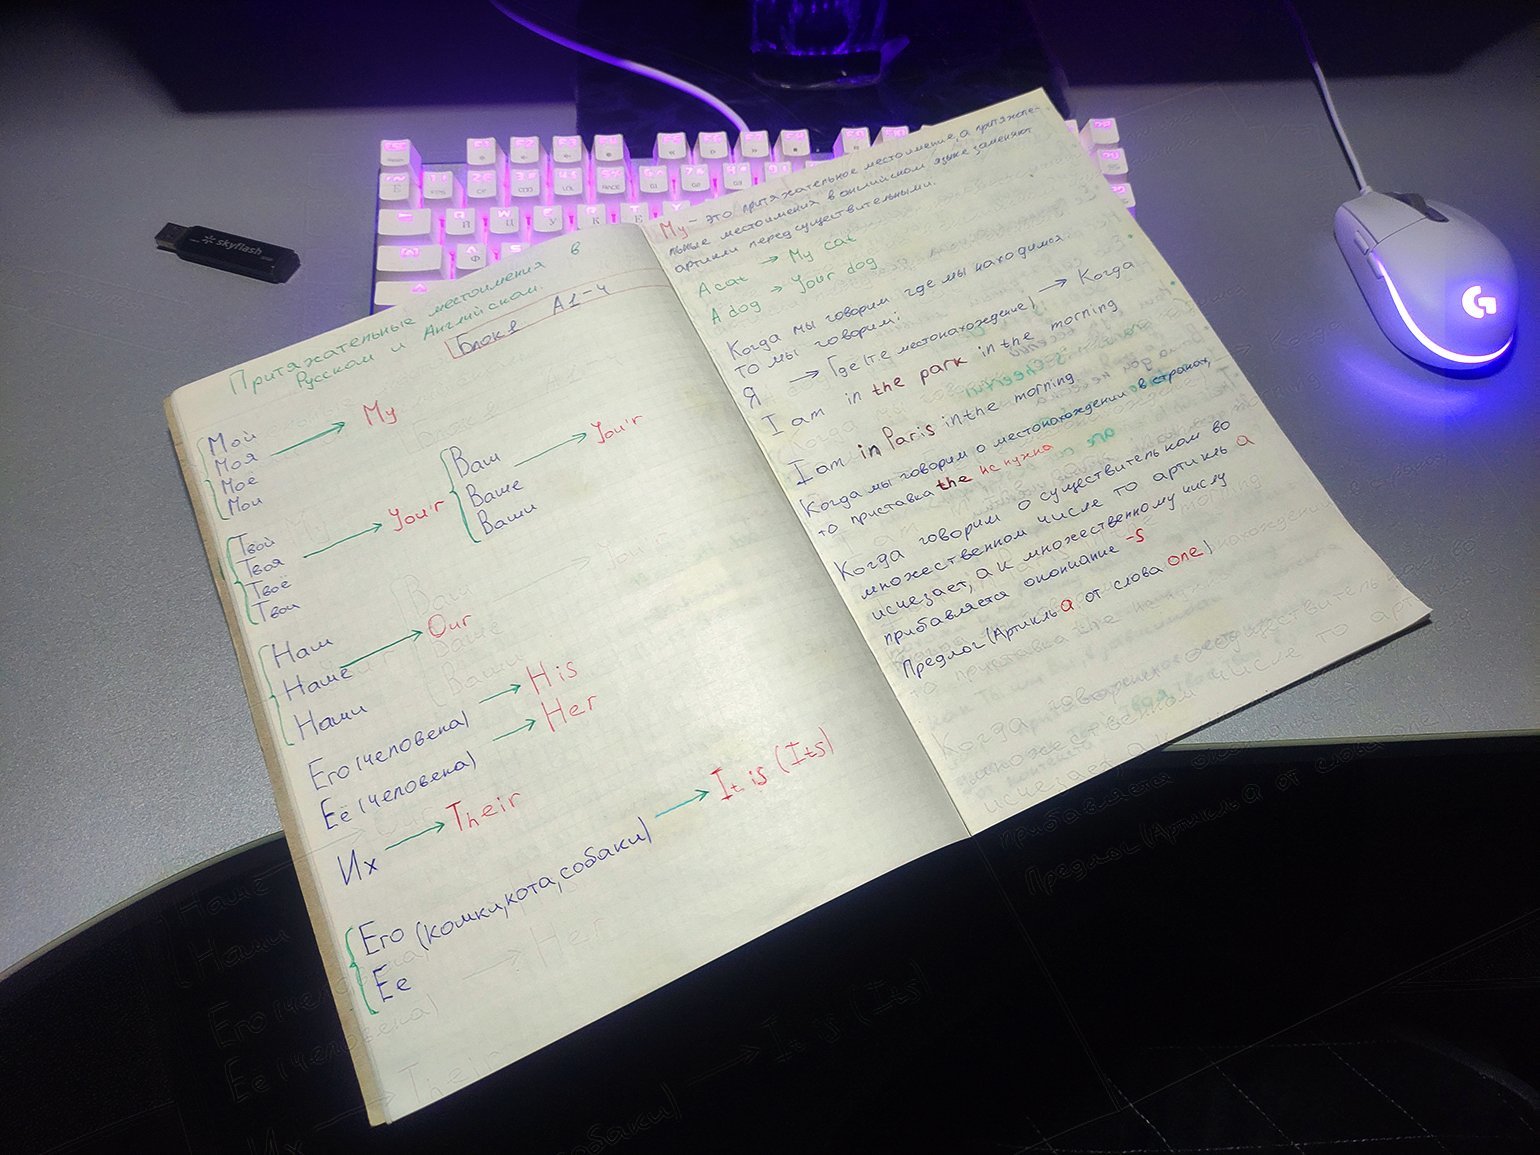 skyflash
Притяжательные местоимения в
Русском и Английском.
Блок 1 А1-4
Мой
Моя
Моё
Мои
My
Твой
Твоя
Твоё
Твои
You'r
Ваш
Ваше
Ваши
You'r
Наш
Наше
Наши
Our
Его (человека) His
Её (человека) Her
Их Their
Его (комки, кота, собаки) It is (Its)
Ее
My - это притяжательное местоимение, а притяжа-
тельные местоимения в английском языке заменяют
артикли перед существительными.
A cat My cat
A dog Your dog
Когда мы говорим где мы находимся
то мы говорим:
Я Где (те местонахождение) Когда
I am in the park in the morning
I am in Paris in the morning
Когда мы говорим о местонахождении в странах,
то приставка the не нужна
Когда говорим о существительном во
множественном числе то артикль a
исчезает, а к множественному числу
прибавляется окончание -s
Предлог (Артикль a от слова one)